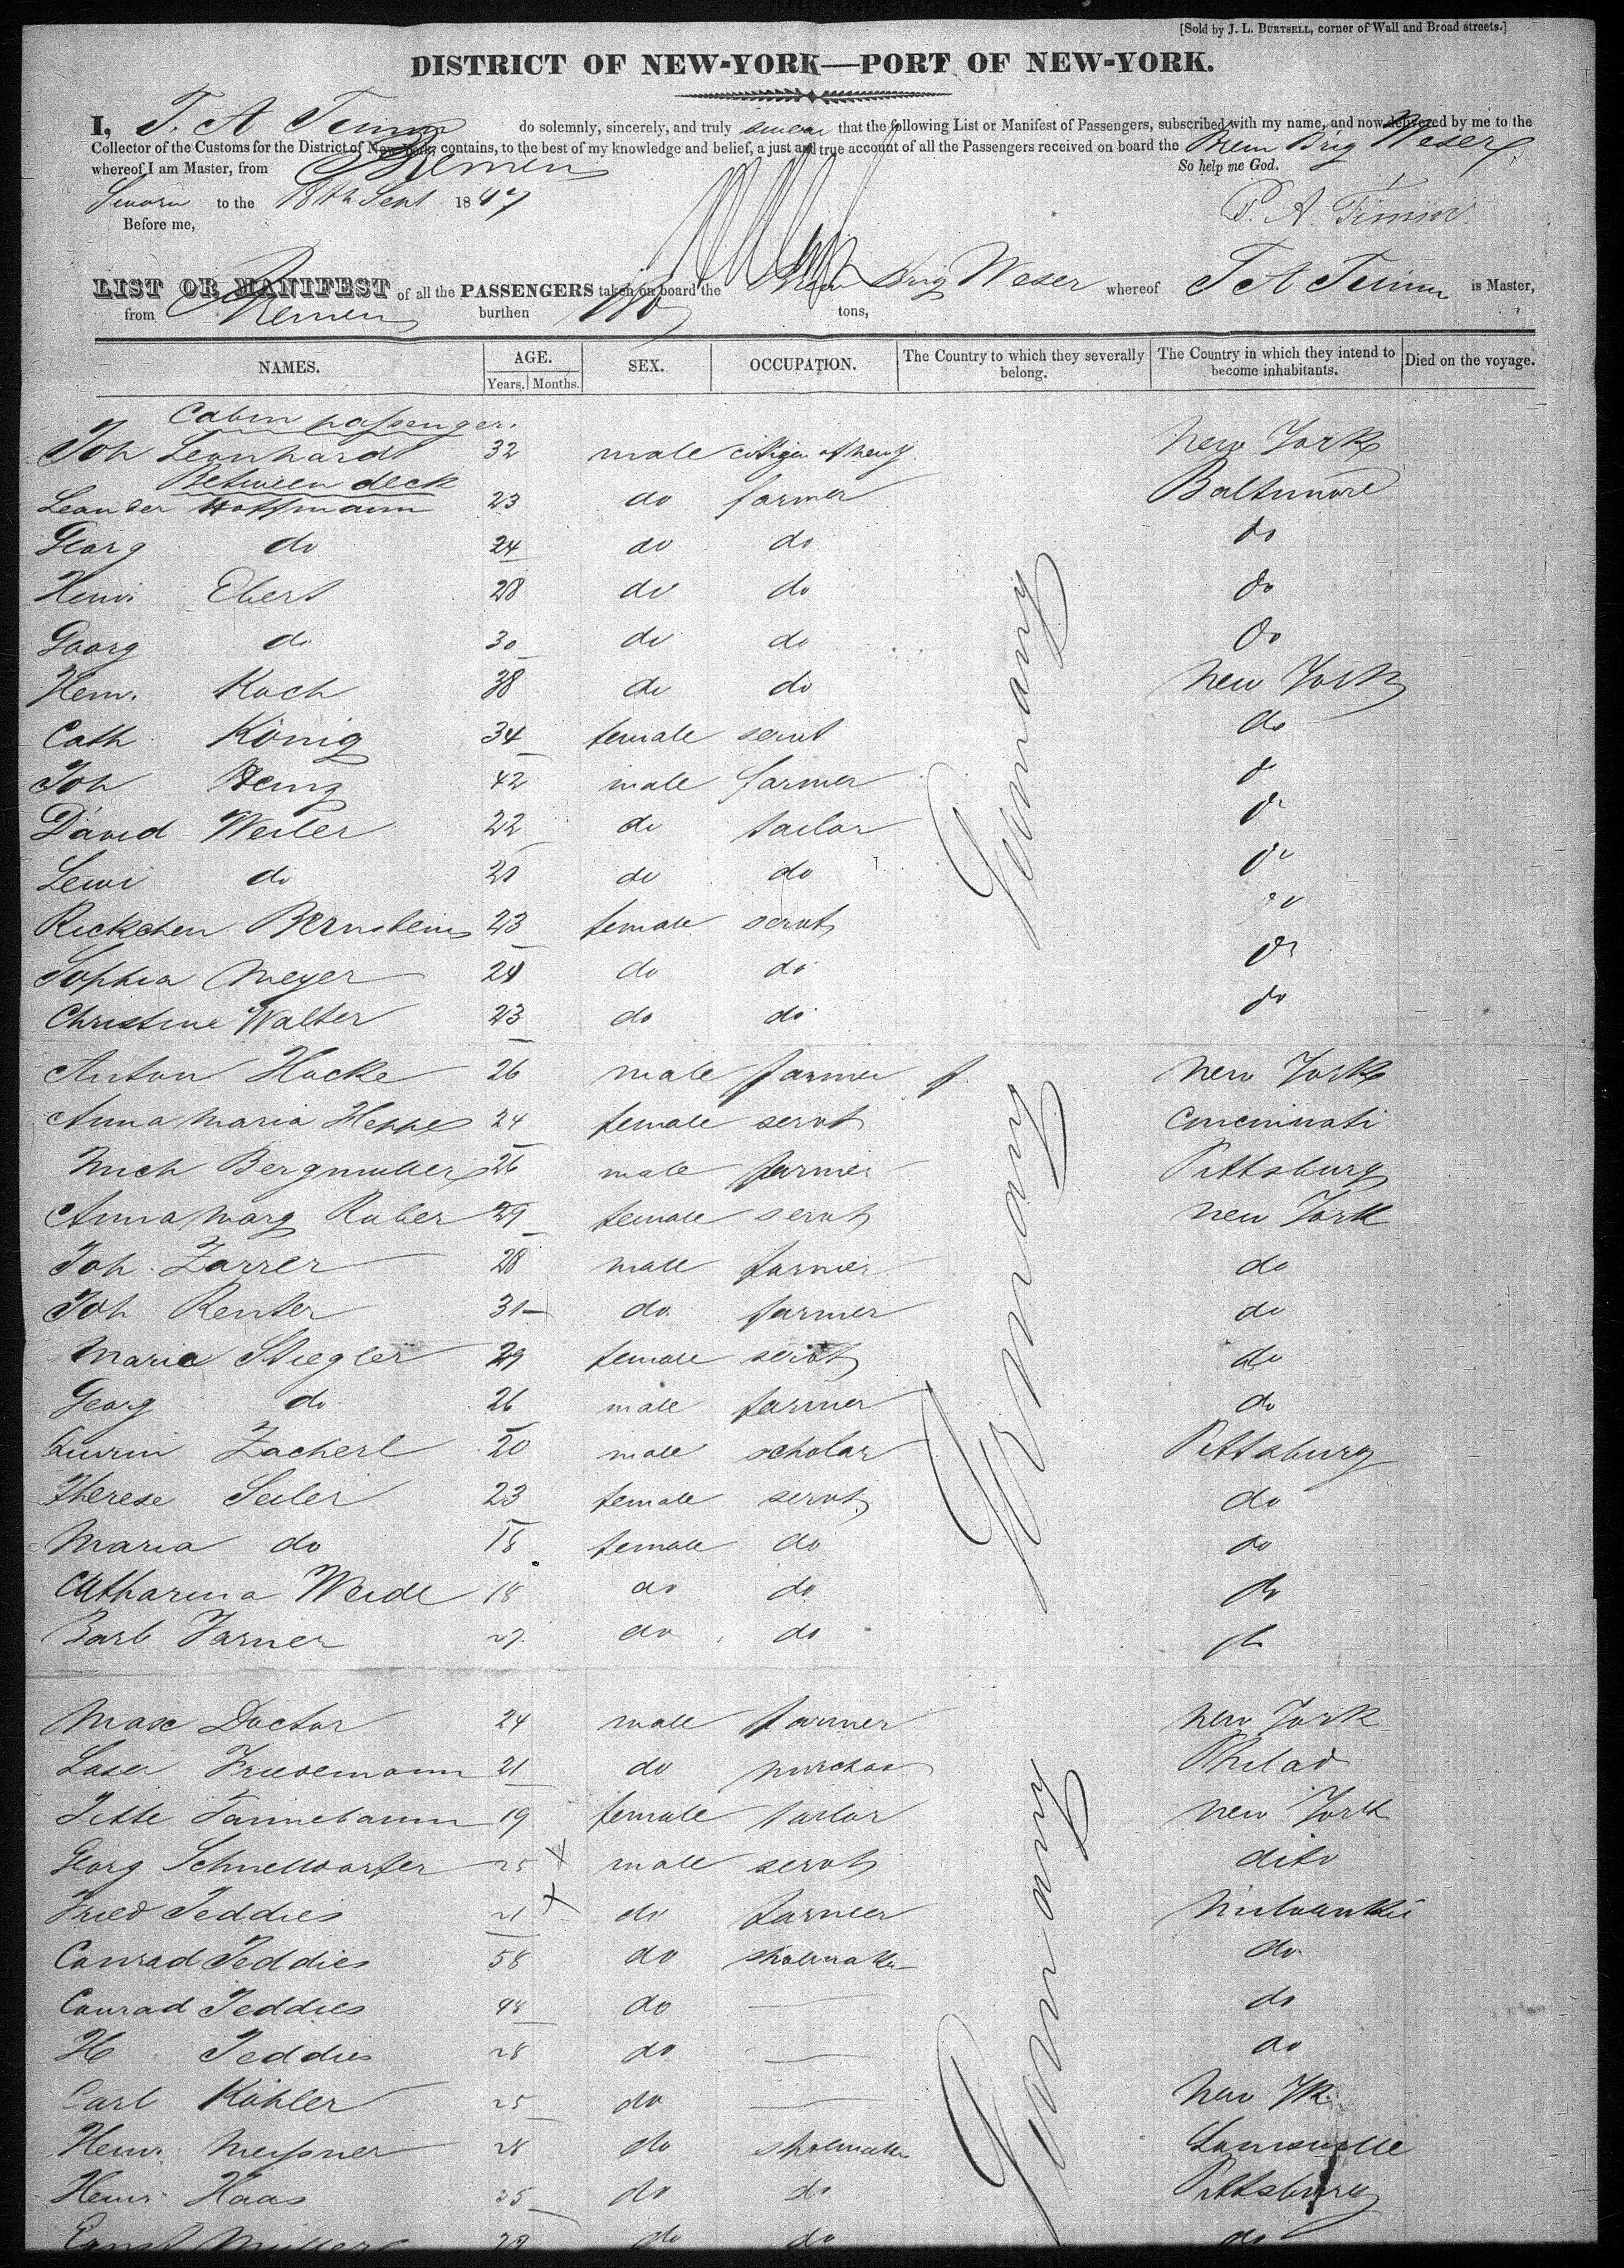 [Sold by J. L. BURTSELL, corner of Wall and Broad streets.]
DISTRICT OF NEW-YORK—PORT OF NEW-YORK.
I, do solemnly, sincerely, and truly swear that the following List or Manifest of Passengers, subscribed with my name, and now delivered by me to the
Collector of the Customs for the District of New-York, contains, to the best of my knowledge and belief, a just and true account of all the Passengers received on board the Brem Brig Weser
whereof I am Master, from Bremen So help me God.
Sworn to the 18th Sept 1847
Before me,
LIST OR MANIFEST of all the PASSENGERS taken on board the Brem Brig Weser whereof is Master,
from Bremen burthen tons,
NAMES. AGE. SEX. OCCUPATION. The Country to which they severally belong. The Country in which they intend to become inhabitants. Died on the voyage.
Years. Months.
Cabin passenger.
Joh Leonhardt 32 male New York
Between deck
Leander Hoffmann 23 do farmer Baltimore
Georg do 24 do do do
Henri Ebert 28 do do do
Georg do 30 do do do
Henr. Koch 38 do do New York
Cath König 34 female servt do
Joh 42 male farmer do
Germany
David Weiler 22 do tailor do
Lewi do do do do
Rickchen Bernstein 23 female servt do
Sophia Meyer 24 do do do
Christine Walter 23 do do do
Anton Hocke 26 male farmer New York
Anna Maria Heppe 24 female servt Cincinnati
Mich Bergmuller 26 male farmer Pittsburg
Anna Marg Ruber 29 female servt New York
Joh. Zarrer 28 male farmer do
Joh Renter 31 do farmer do
Maria Stiegler 29 female servt do
Germany
Georg do 26 male farmer do
Quirin Zacherl 20 male scholar Pittsburg
Therese Seiler 23 female servt do
Maria do 18 female do do
Catharina Weidl 18 do do do
Barb Farner 27 do do do
Max Doctor 24 male farmer New York
Laser Friedemann 21 do Philad
Jette Tannebaum 19 female tailor New York
Georg Schnelldorfer 25 male servt dito
Fried Jeddies 21 do farmer Milwaukie
Conrad Jeddies 58 do shoemaker do
Germany
Conrad Jeddies 48 do — do
H Jeddies 28 do — do
Carl Köhler 25 do — New Yk
Henr. Meissner 28 do shoemaker Louisville
Henr. Haas 35 do do Pittsburg
Ernst Müller 29 do do do